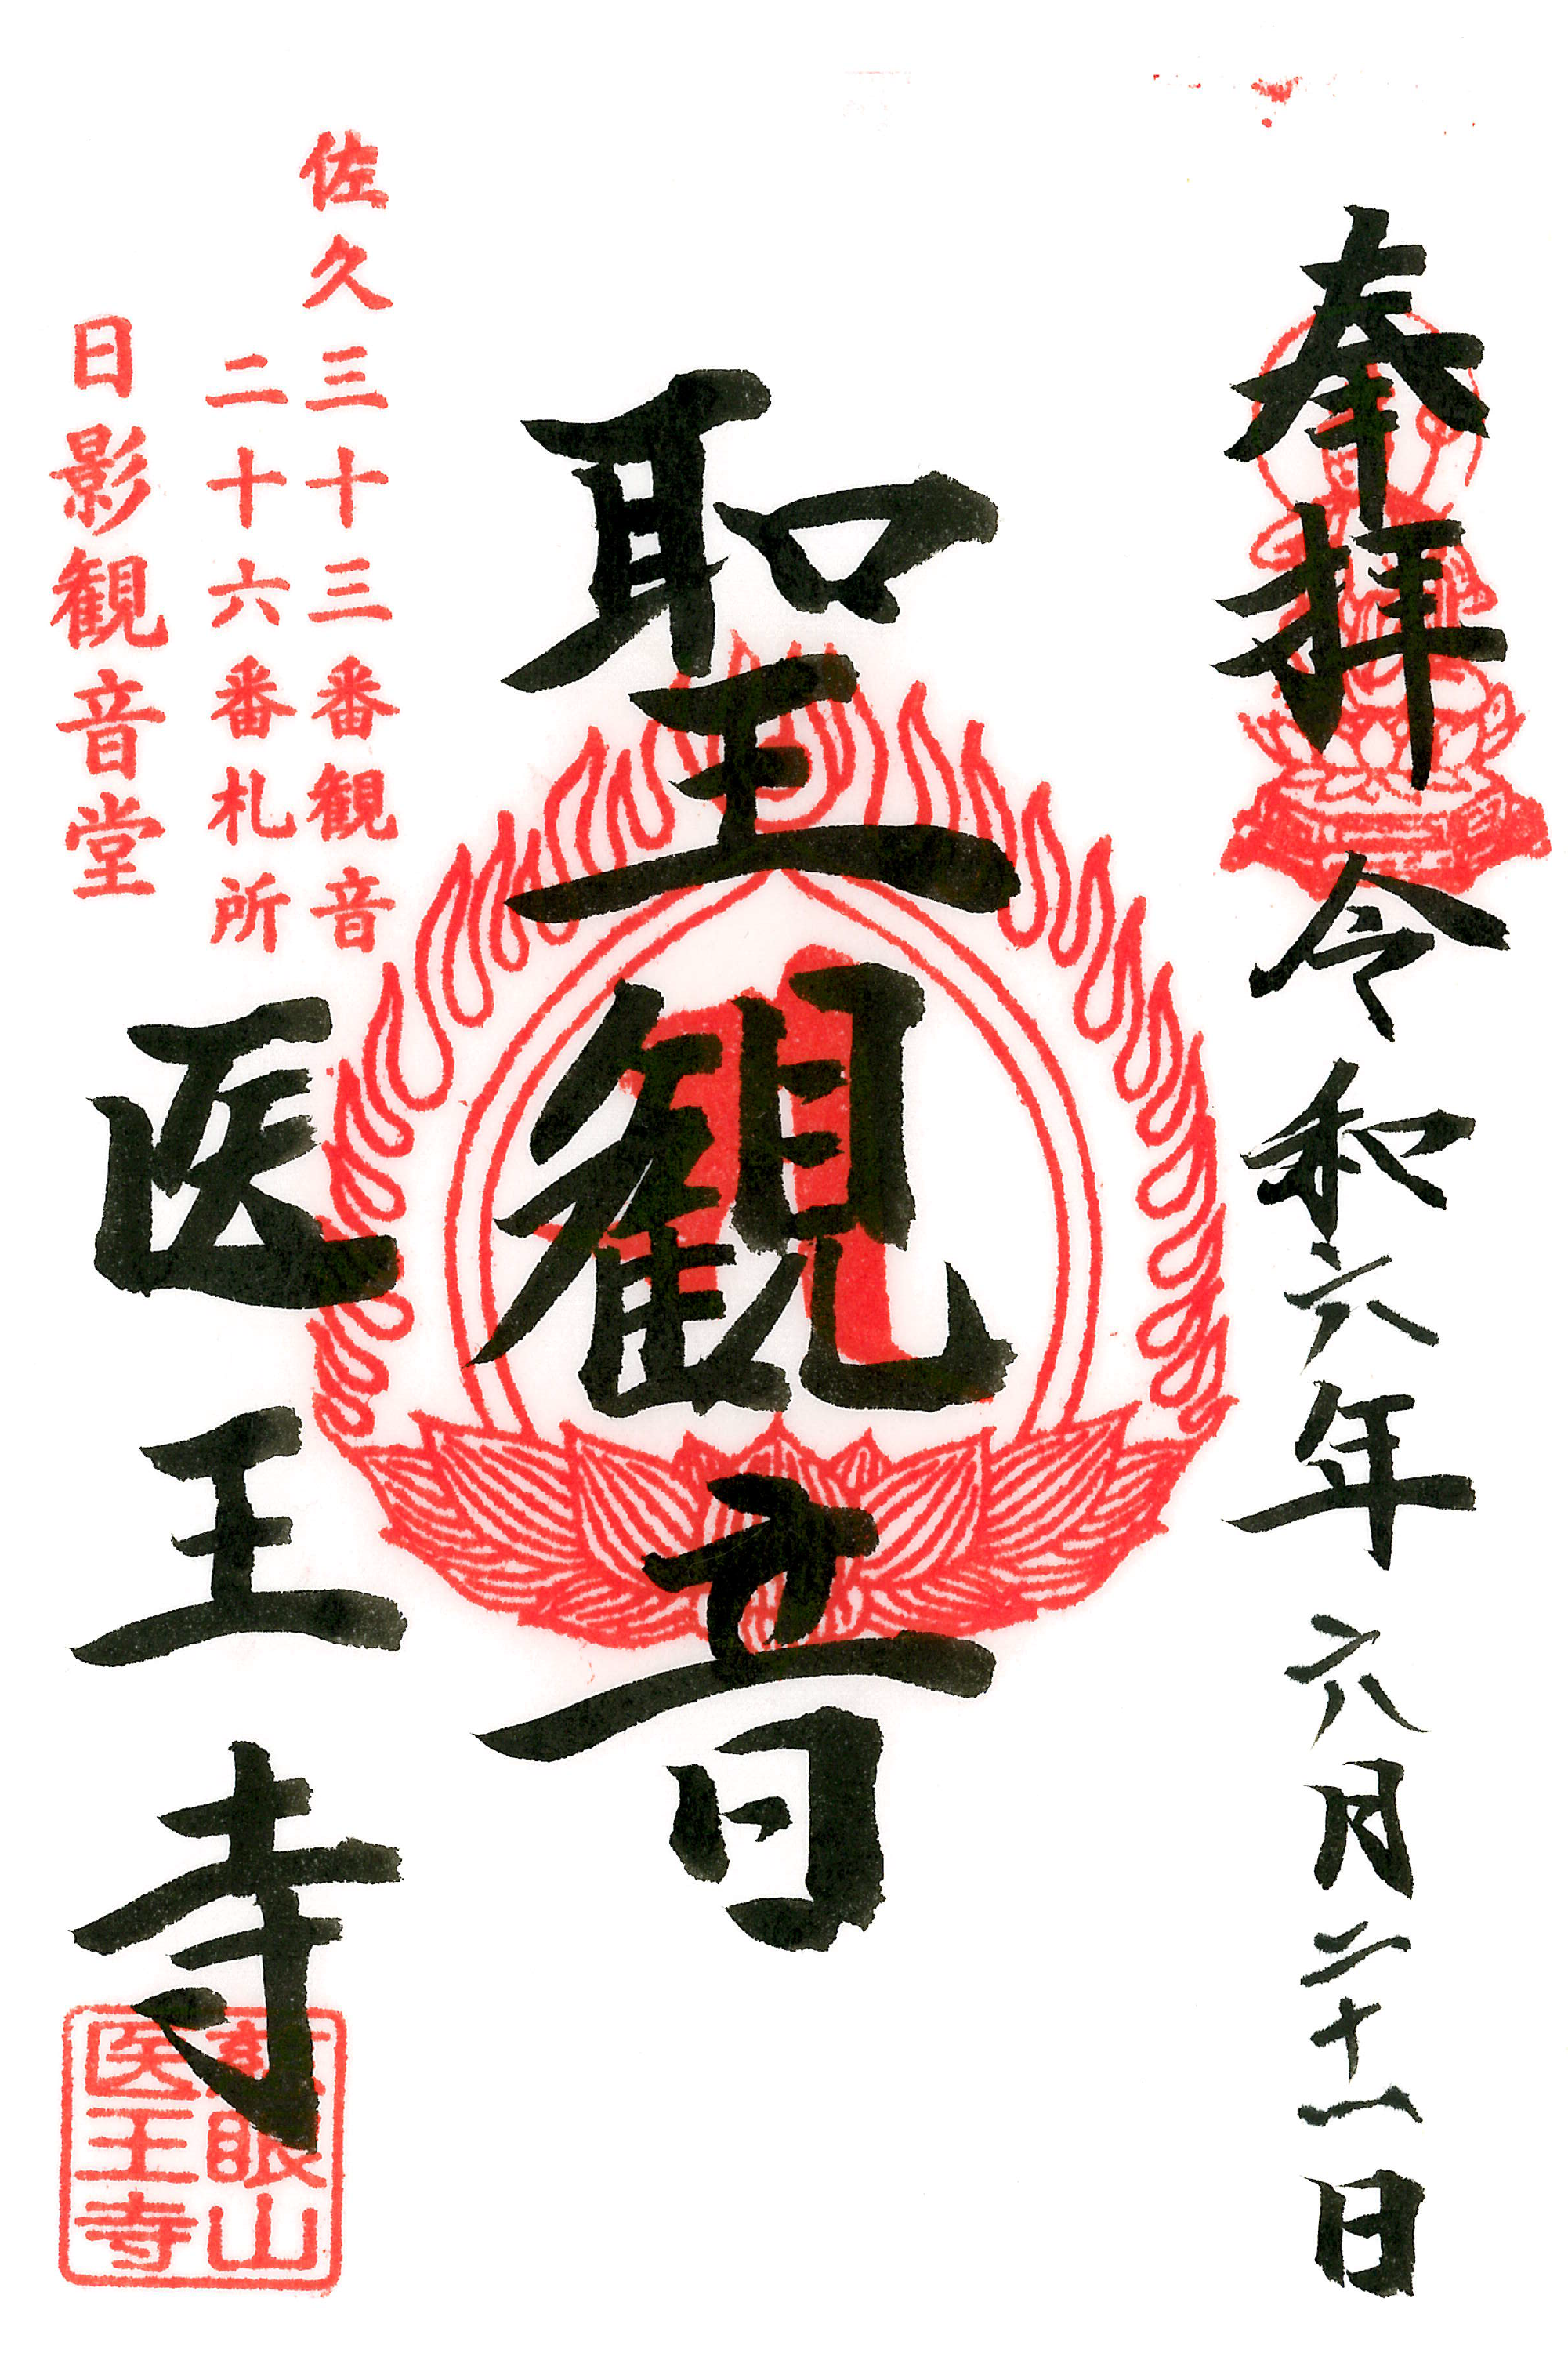 奉拝 令和六年 六月二十一日
聖観音
佐久三十三番観音
二十六番札所
日影観音堂
医王寺
眼山
医王寺